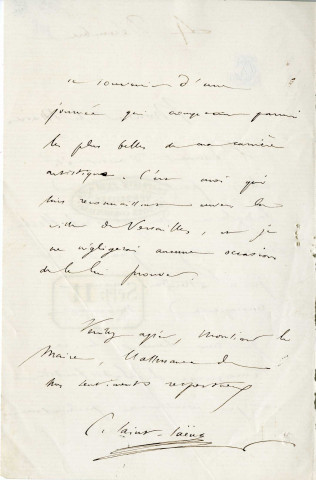 ce souvenir d'une
journée qui comptera parmi
les plus belles de ma carrière
artistique. C'est moi qui
suis reconnaissant envers la
ville de Versailles, et je
ne négligerai aucune occasion
de le lui prouver.
Veuillez agréer, Monsieur le
Maire, l'assurance de
mes sentiments respectueux
C. Saint-Saëns